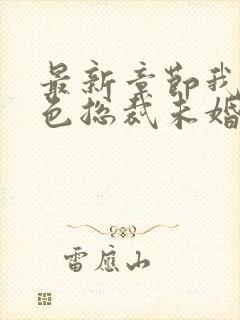 最新章节我
色总裁未婚
雷应山